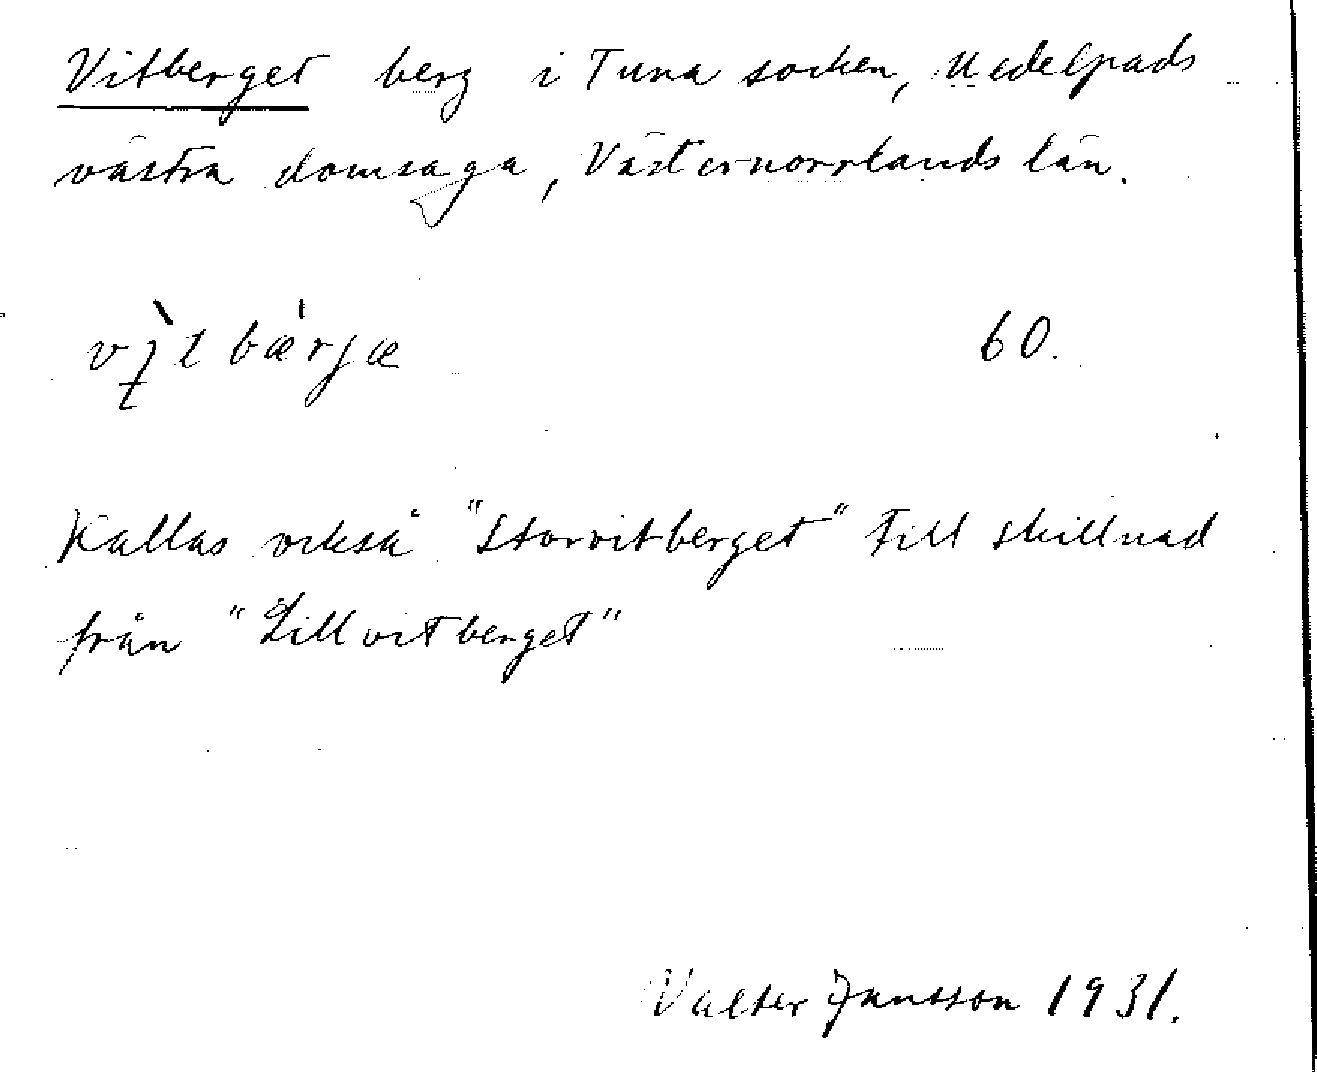 Vitberget berg i Tuna socken, Medelpads
västra domsaga, Västernorrlands län.
60.
Kallas också "Storvitberget" till skillnad
från "Lillvitberget"
Valter Jansson 1931.